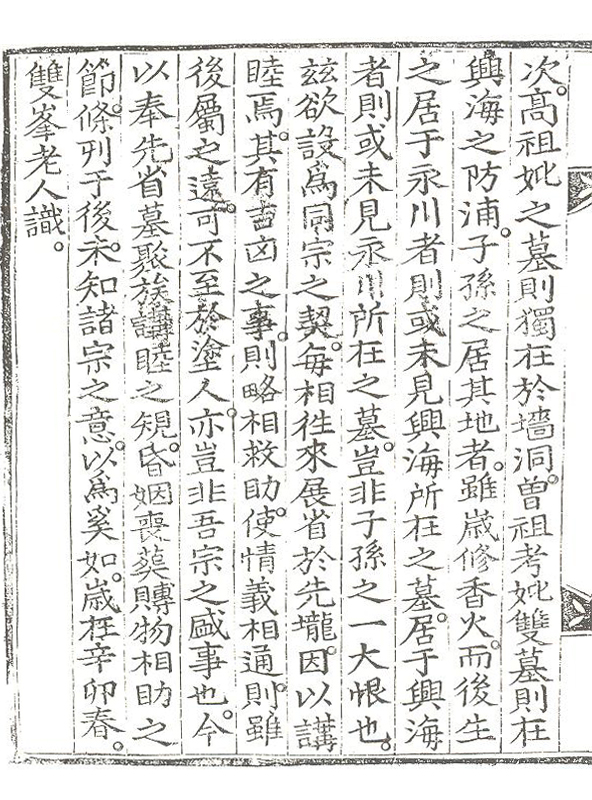 次。高祖妣之墓則獨在於墻洞。曾祖考妣雙墓則在
興海之防浦。子孫之居其地者。雖歲修香火。而後生
之居于永川者則或未見興海所在之墓。居于興海
者則或未見永川所在之墓。豈非子孫之一大恨也。
玆欲設爲同宗之契。每相徃來展省於先壠。因以講
睦焉。其有吉凶之事。則略相救助。使情義相通。則雖
後屬之遠。可不至於塗人。亦豈非吾宗之盛事也。今
以奉先省墓聚族講睦之䂓。昏姻喪葬賻物相助之
節。條列于後。未知諸宗之意。以爲奚如。歲在辛卯春。
雙峯老人識。